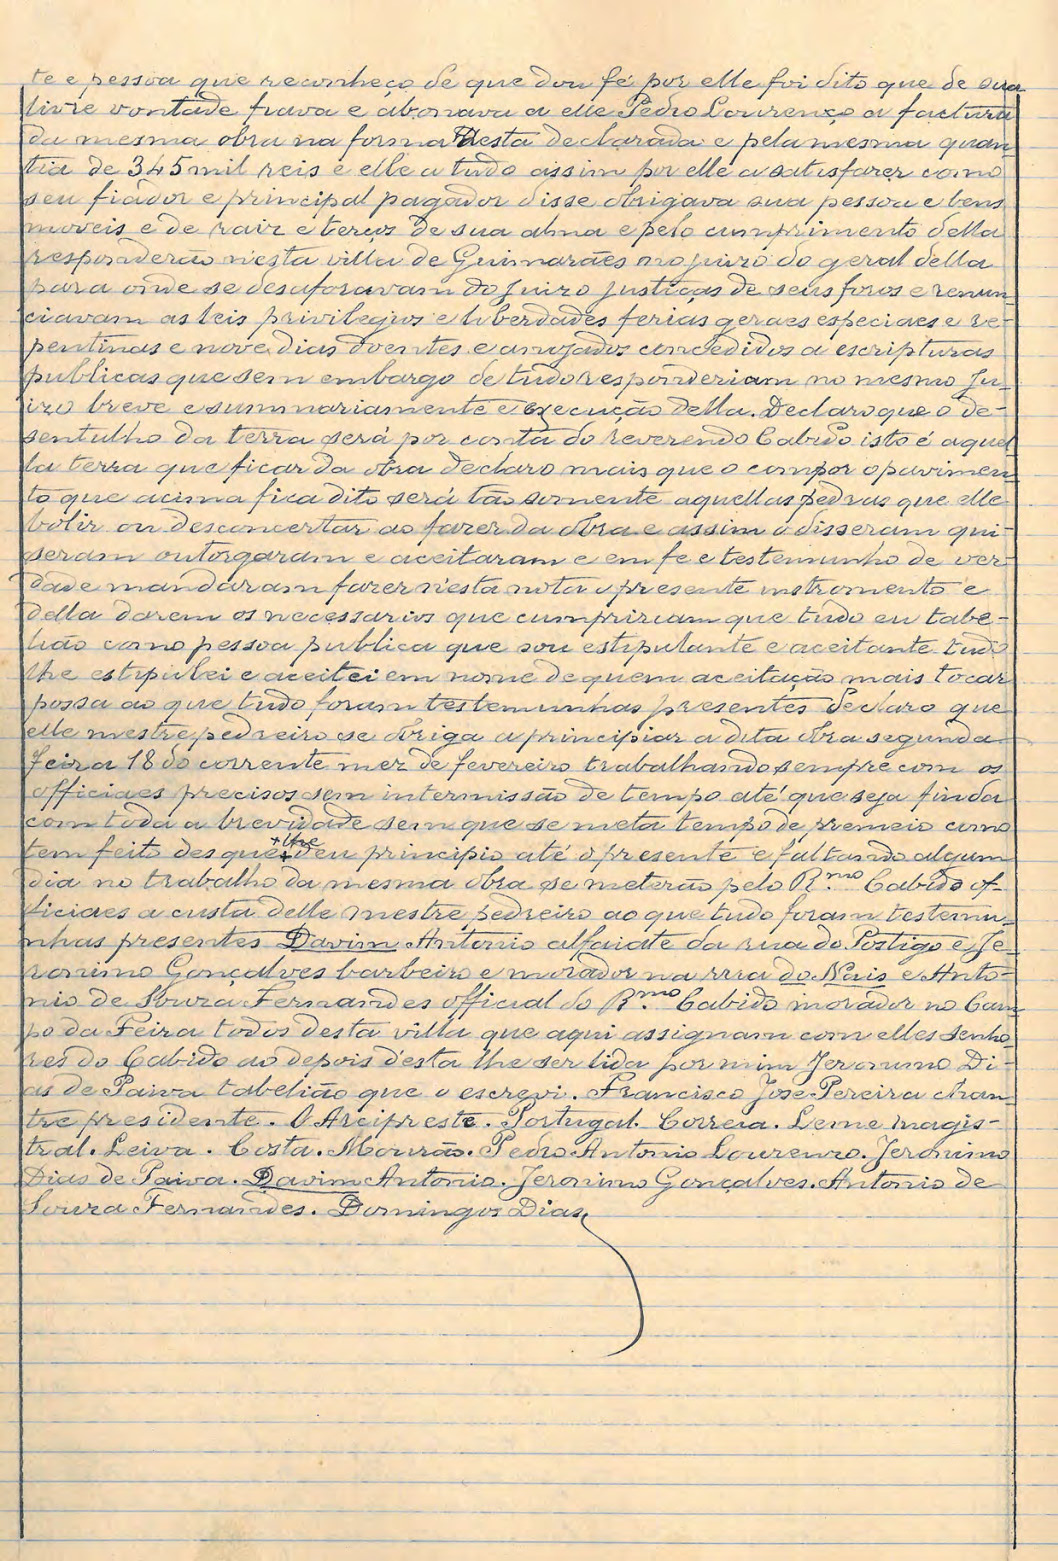 te e pessoa que reconheço de que dou fé por elle foi dito que de sua
livre vontade fiava e abonava a elle Pedro Lourenço a factura
da mesma obra na forma nesta declarada e pela mesma quan-
tia de 345 mil reis e elle a tudo assim por elle a satisfazer como
seu fiador e principal pagador disse obrigava sua pessoa e bens
moveis e de raiz e terços de sua alma e pelo cumprimento della
responderão n'esta villa de Guimarães no juizo do geral della
para onde se desaforavam do Juizo Justiças de seus foros e renun-
ciavam as leis privilegios e liberdades ferias geraes especiaes e re-
pentinas e nove dias doentes e anojados concedidos a escripturas
publicas que sem embargo de tudo responderiam no mesmo Ju-
izo breve e summariamente e execução della. Declaro que o de-
sentulho da terra será por conta do reverendo Cabido isto é aquel-
la terra que ficar da obra declaro mais que o compor o pavimen-
to que acima fica dito será tão somente aquellas pedras que elle
bolir ou desconcertar ao fazer da obra e assim o disseram qui-
seram outorgaram e aceitaram e em fe e testemunho de ver-
dade mandaram fazer n'esta nota o presente instromento e
della darem os necessarios que cumpriram que tudo eu tabe-
lião como pessoa publica que sou estipulante e aceitante tudo
lhe estipulei e aceitei em nome de quem aceitação mais tocar
possa ao que tudo foram testemunhas presentes declaro que
elle mestre pedreiro se obriga a principiar a dita obra segunda
feira 18 do corrente mez de fevereiro trabalhando sempre com os
officiaes precisos sem intermissão de tempo até que seja finda
com toda a brevidade sem que se meta tempo de premeio como
tem feito desque + lhe + deu principio até o presente e faltando algum
dia no trabalho da mesma obra se meterão pelo R.mo Cabido of-
ficiaes a custa delle mestre pedreiro ao que tudo foram testemu-
nhas presentes Davim Antonio alfaiate da rua do Postigo e Je-
ronimo Gonçalves barbeiro e morador na rrua do Nais e Anto-
nio de Souza Fernandes official do R.mo Cabido morador no Cam-
po da Feira todos desta villa que aqui assignam com elles senho
res do Cabido ao depois d'esta lhe ser lida por mim Jeronimo Di-
as de Paiva tabelião que o escrevi. Francisco José Pereira chan-
tre presidente. O Arcipreste. Portugal. Correia. Leme magis-
tral. Leiva. Costa. Mourão. Pedro Antonio Lourenço. Jeronimo
Dias de Paiva. Davim Antonio. Jeronimo Gonçalves. Antonio de
Souza Fernandes. Domingos Dias